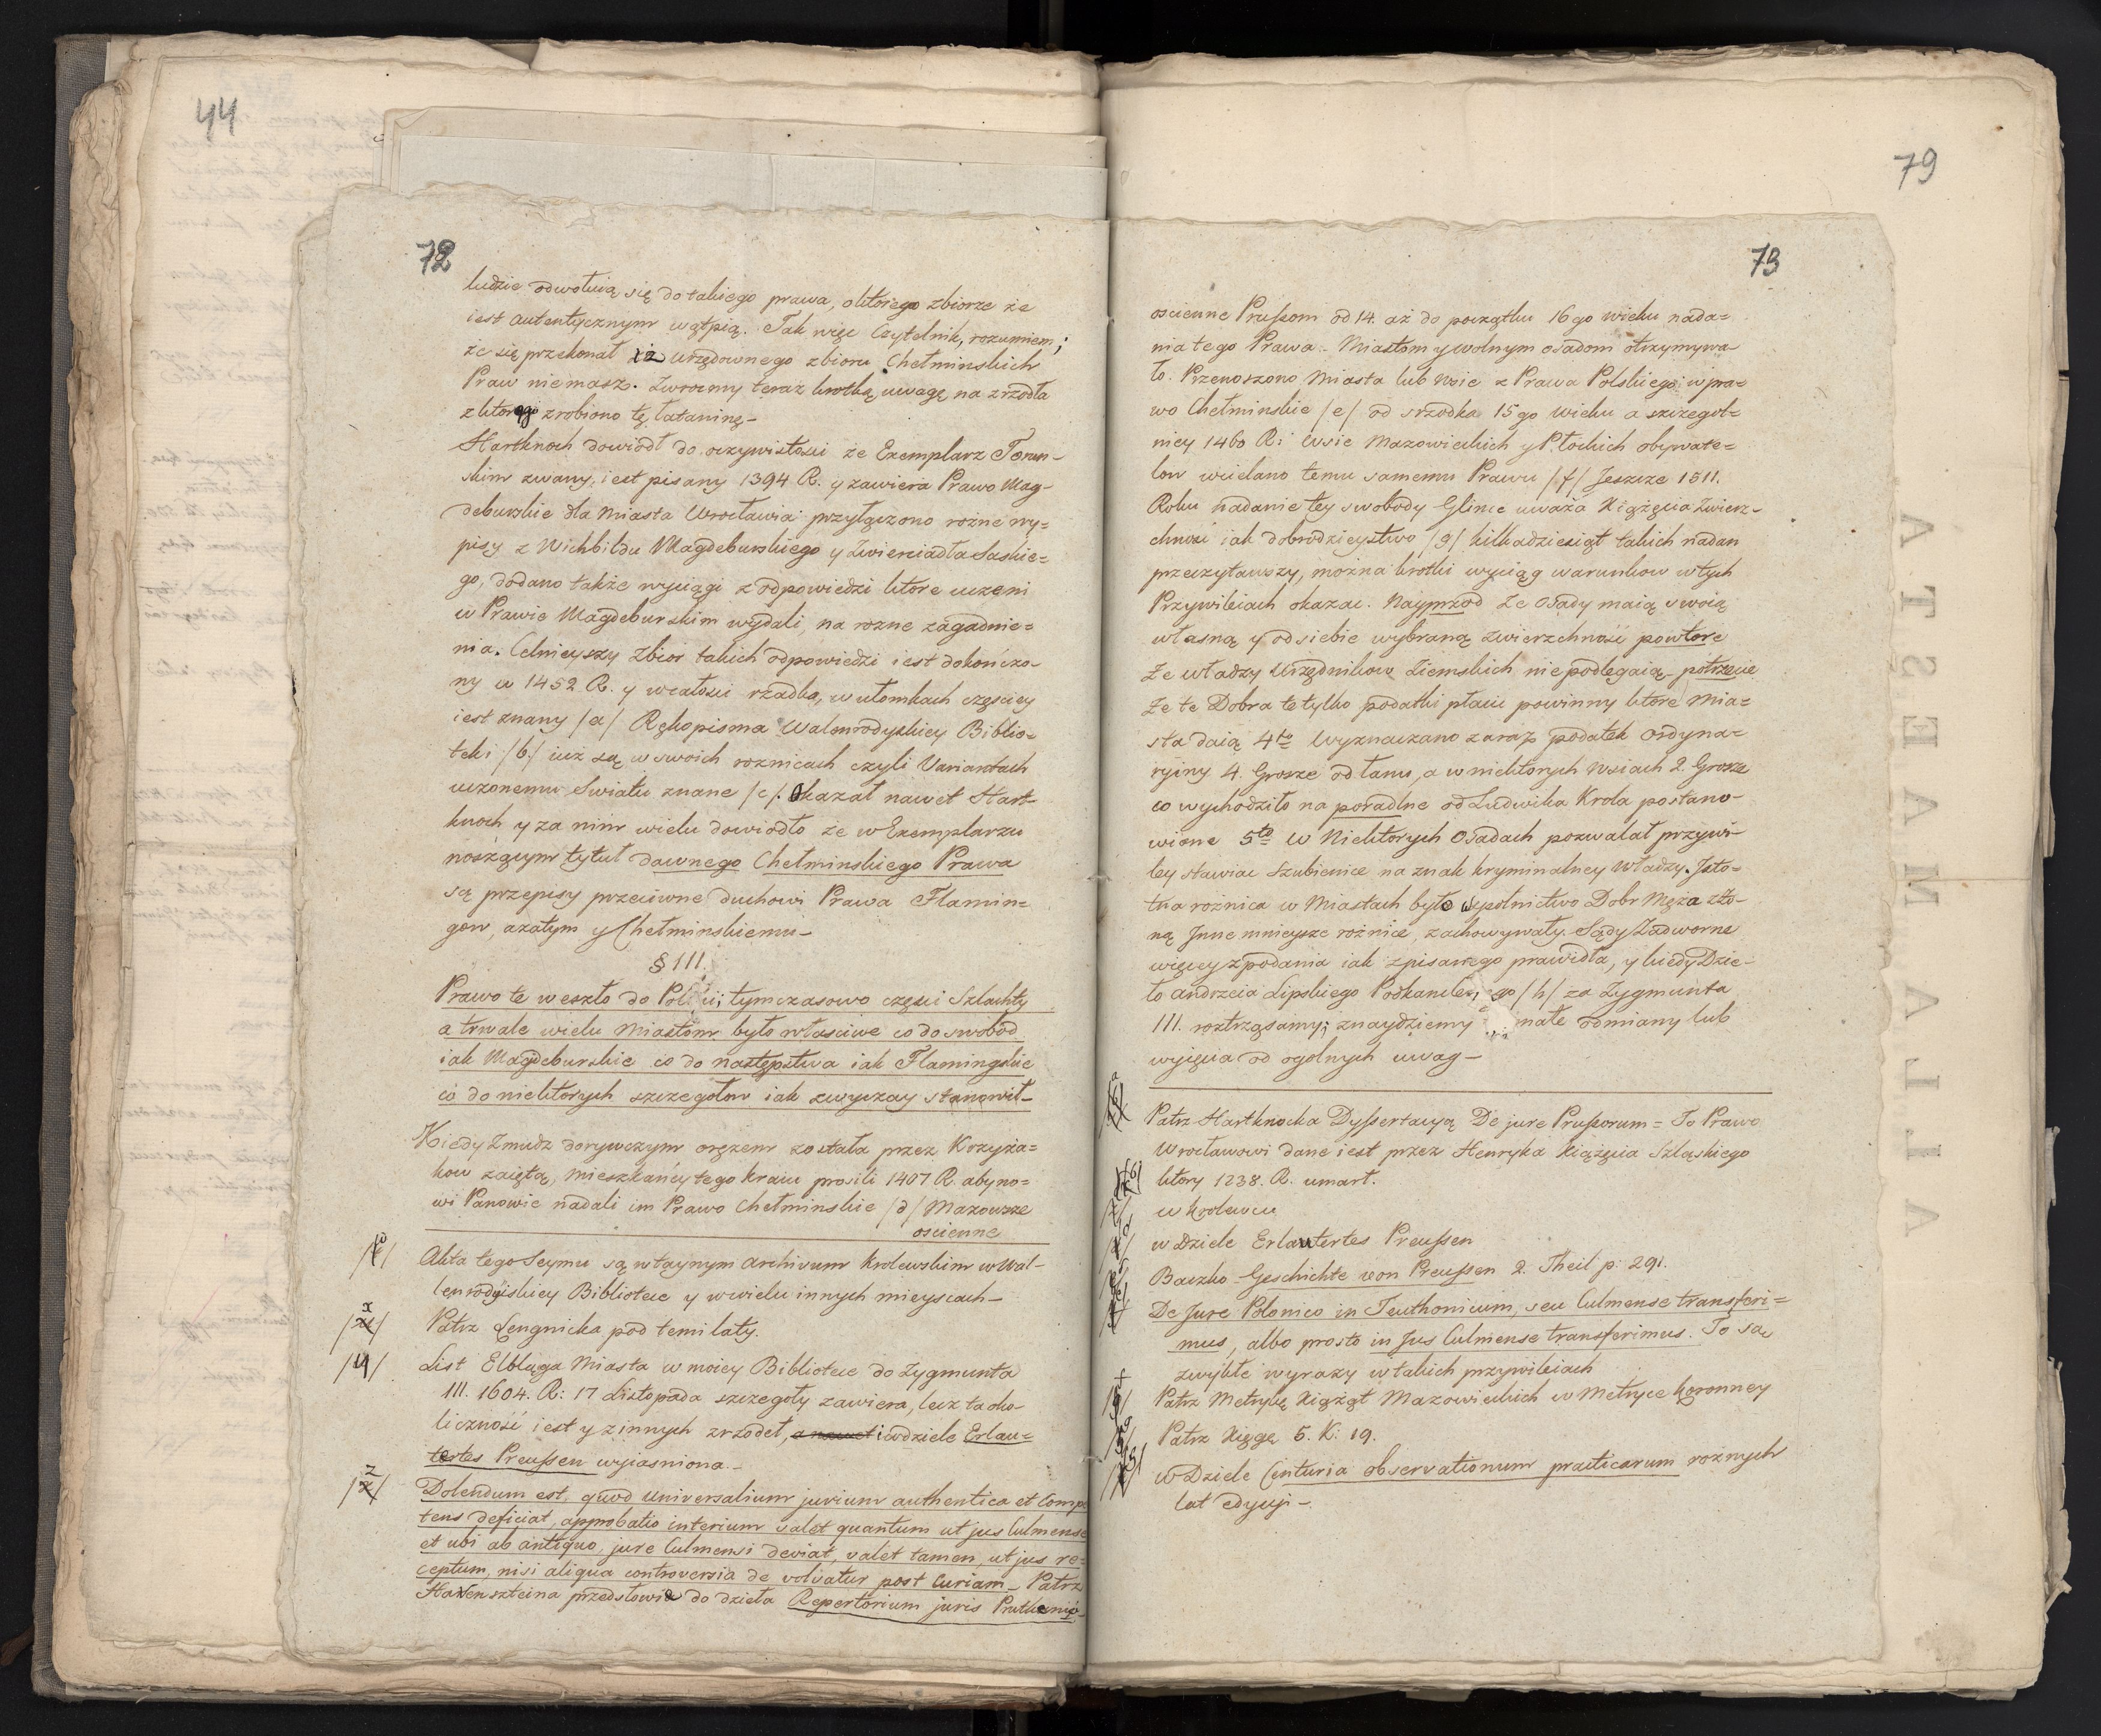 44
72
ludzie odwołuią się do takiego prawa, o którego zbiorze że
iest autentycznym wątpią. Tak więc Czytelnik, rozumiem;
że się przekonał iż urzędownego zbioru Chełminskich
Praw niemasz. Zwroćmy teraz krotką uwagę na zrzodła
z ktorego zrobiono tę łataninę –
Hartknoch dowiodł do oczywistosci że Exemplarz Torun-
skim zwany, iest pisany 1394 R. y zawiera Prawo Mag-
deburskie dla Miasta Wrocławia przyłączono rożne wy=
pisy z Wichbildu Magdeburskiego y Zwierciadła Saskie=
go, dodano także wyciągi z odpowiedzi ktore uczeni
w Prawie Magdeburskim wydali, na rozne zagadnie=
nia. Celnieyszy Zbior takich odpowiedzi iest dokonczo-
ny w 1452 R. y w całosci rzadko, w ułomkach częsciey
iest znany /a/ Rękopisma Walenrodyskiey Biblio=
teki /b/ iuż są w swoich roznicach czyli Variantach
uczonemu Swiatu znane /c/. Okazał nawet Hart-
knoch y za nim wielu dowiodło że w Exemplarzu
noszącym tytuł dawnego Chełminskiego Prawa
są przepisy przeciwne duchowi Prawa Flamin=
gow, azatym y Chełminskiemu –
§ III.
Prawo te weszło do Polscii; tymczasowo częsci Szlachty
a trwale wielu Miastom było własciwe co do swobod
iak Magdeburskie co do następstwa iak Flamingskie
co do niektorych szczegołow iak zwyczay stanowił –
Kiedy Zmudz dorywczym orężem została przez Krzyża=
kow zaiętą, Mieszkańcy tego Kraiu prosili 1407 R. aby no=
wi Panowie nadali im Prawo Chełminskie /d/ Mazowsze
oscienne
Akta tego Seymu są w taynym Archivum Krolewskim w Wal-
lenrodyiskiey Bibliotece y w wielu innych mieyscach –
x
Patrz Lengnicka pod temi laty.
/y/ List Elbląga Miasta w moiey Bibliotece do Zygmunta
III. 1604. R: 17 Listopada szczegoły zawiera, lecz ta oko-
liczność iest y z innych zrzodeł, a nawet i w dziele Erlau=
tertes Preussen wyiasniona –
z
Dolendum est, quod universalium jurium authentica et Compe
tens deficiat, approbatio interium valet quantum ut jus Culmense
et ubi ab antiquo, jure Culmensi deviat, valet tamen, ut jus re=
ceptum, nisi aliqua controversia de volvatur post Curiam – Patrz
Hawenszteina przedsłowie do dzieła Repertorium juris Pruthenic
79
73
oscienne Prussom od 14. aż do początku 16go wieku nada=
nia tego Prawa – Miastom y wolnym osadom otrzymywa-
ło. Przenoszono Miasta lub Wsie z Prawa Polskiego w pra=
wo Chełminskie /e/ od srzodka 15go wieku a szczegol=
niey 1460 R: Wsie Mazowieckich y Płockich obywate=
low wcielano temu samemu Prawu /f/ Jeszcze 1511.
Roku nadanie tey swobody Glince uważa Xiążęcia Zwierz-
chność iak dobrodzieystwo /g/ kilkadziesiąt takich nadan
przeczytawszy, można krotki wyciąg warunkow w tych
Przywileiach okazac. Nayprzod Ze Osady maią swoią
własną y od siebie wybraną zwierzchność powtore
Ze władzy Urzędnikow Ziemskich nie podlegaią, potrzecie
Ze te Dobra te tylko podatki płacić powinny ktore Mia=
sta daią 4to Wyznaczano zaraz podatek Ordyna=
ryiny 4. Grosze od łanu, a w niektorych Wsiach 2. Grosze
co wychodziło na poradlne od Ludwika Krola postano-
wione 5to W Niektorych Osadach pozwalał przywi-
ley stawiać Szubienice na znak kryminalney Władzy. Isto=
tna roznica w Miastach było wspolnictwo Dobr Męża z Żo-
ną Jnne mnieysze rożnice, zachowywały Sądy Zadworne
więcey z podania iak z pisanego prawidła, y kiedy Dzie-
ło Andrzeia Lipskiego Podkancler go /h/ za Zygmunta
III. roztrząsamy; znaydziemy nałe odmiany lub
wyięcia od ogolnych uwag –
a
Patrz Hartknocka Dyssertacyą De jure Prussorum = To Prawo
Wrocławowi dane iest przez Henryka Xiążęcia Szląskiego
ktory 1238. R. umarł.
w Krolewcu
w Dziele Erlautertes Preussen
Baczko Geschichte von Preussen 2. Theil p: 291.
De Jure Polonico in Teuthonicum, seu Culmense transferi=
mus, albo prosto in Jus Culmense transferimus. To są
zwykłe wyrazy w takich przywileiach
Patrz Metrykę Xiążąt Mazowieckich w Metryce Koronney
Patrz Xięgę 5. K: 19.
w Dziele Centuria observationum practicarum roznych
lat edycyi –